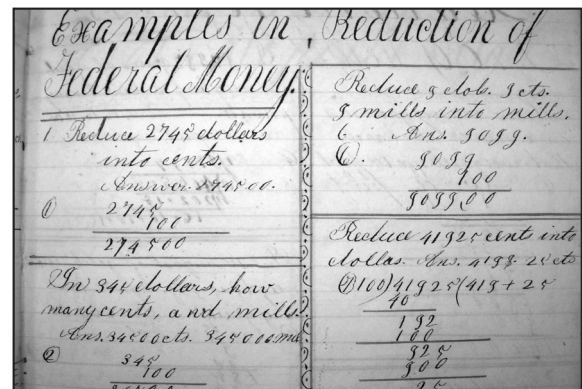 Examples in Reduction of
Federal Money.
1 Reduce 2745 dollars
into cents.
Answer. 274500.
① 2745
100
274500
In 345 dollars, how
many cents, and mills.
Ans. 34500cts. 345000m
② 345
100
Reduce 9 dols. 9 cts.
9 mills into mills.
6 Ans. 9099.
⑥. 9099
100
9099,00
Reduce 41925 cents into
dollas. Ans. 419$ 25 cts
⑦ 100)41925(419+25
40
192
100
925
900
25